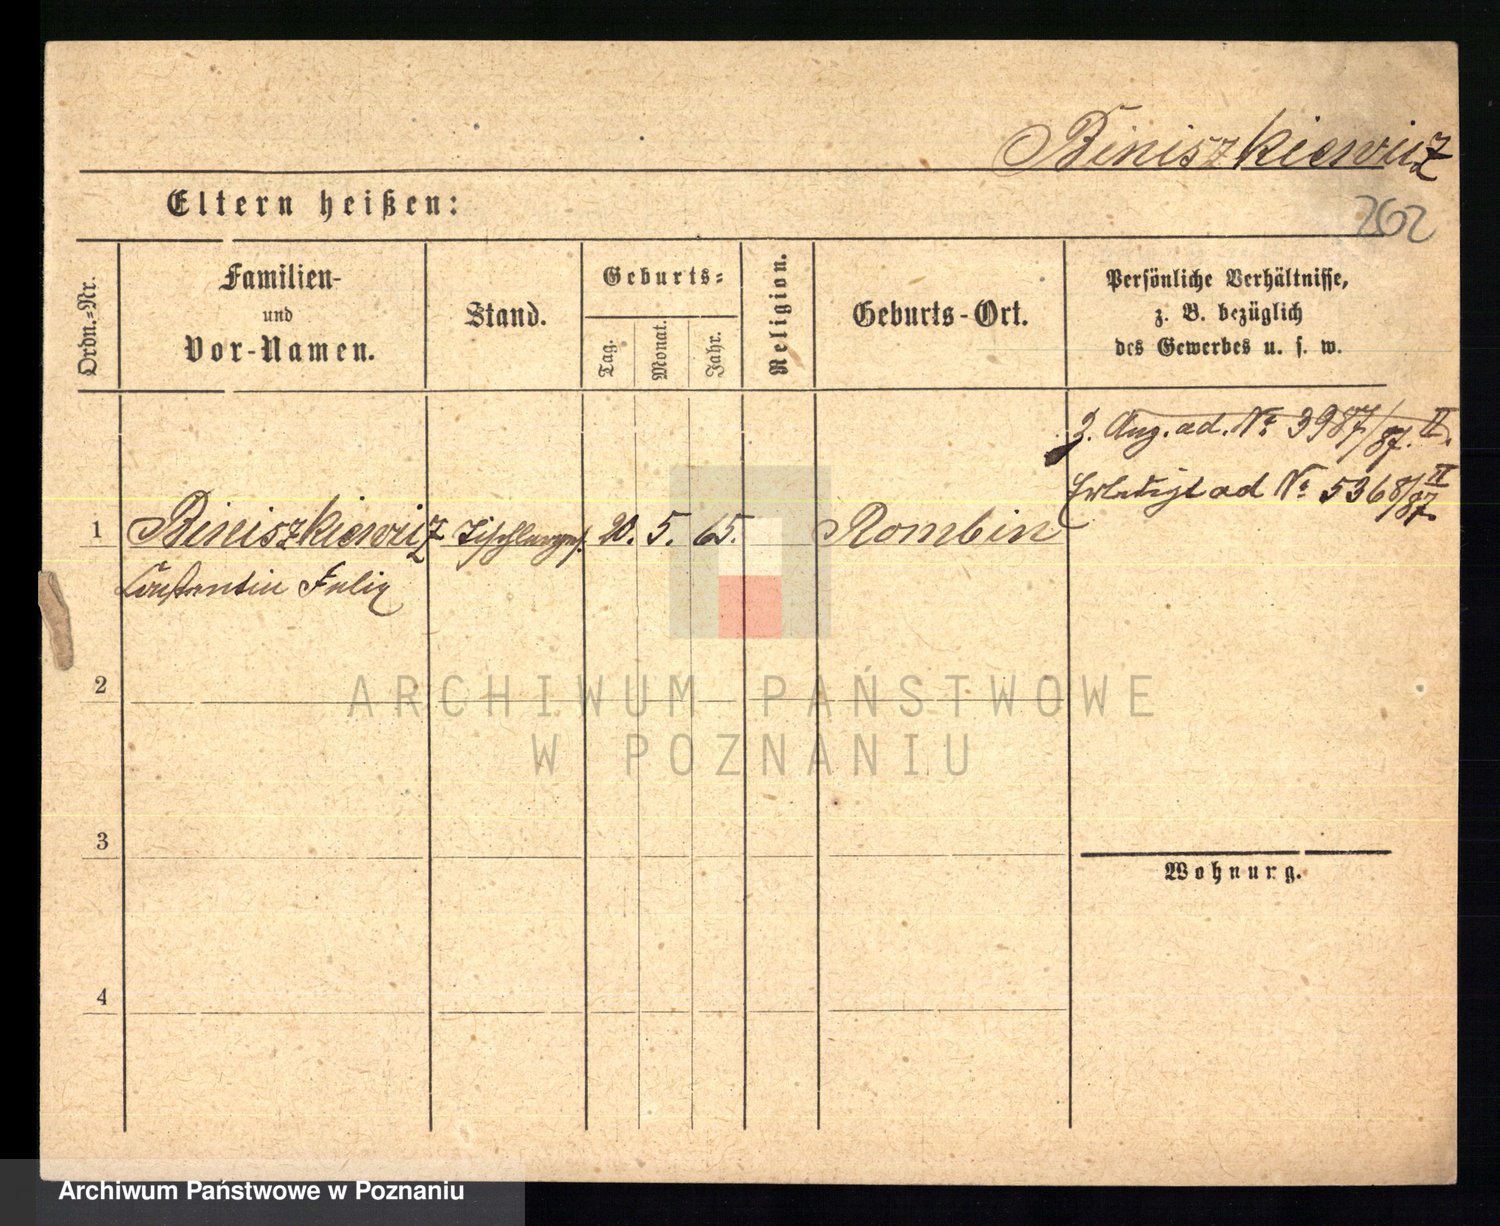 Biniszkiewicz
Eltern heißen:
262
Ordn.-Nr.
Familien-
und
Vor-Namen.
Stand.
Geburts-
Tag.
Monat.
Jahr.
Religion.
Geburts-Ort.
Persönliche Verhältnisse,
z. B. bezüglich
des Gewerbes u. s. w.
z. Anz. ad. No 3987/87. II.
Erledigt ad No 5368/87. II
1 Biniszkiewicz Tischlerges. 20. 5. 65. Rombin
Constantin Felix
2
ARCHIWUM PAŃSTWOWE
W POZNANIU
3
Wohnung.
4
Archiwum Państwowe w Poznaniu